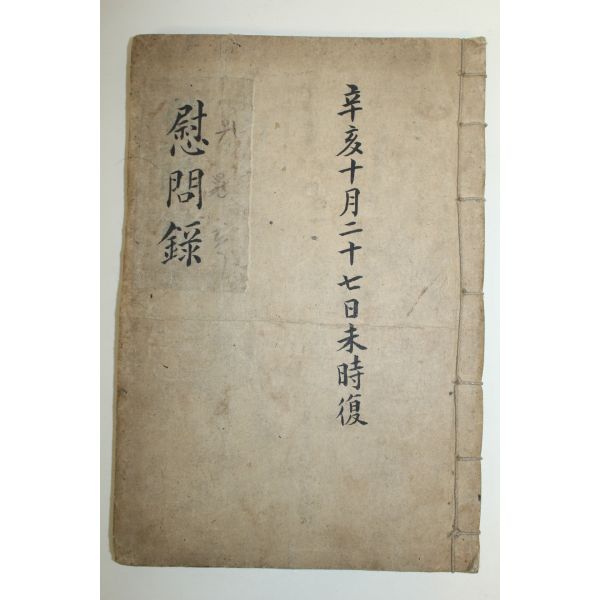 辛亥十月二十七日未時復
慰問錄
위문록